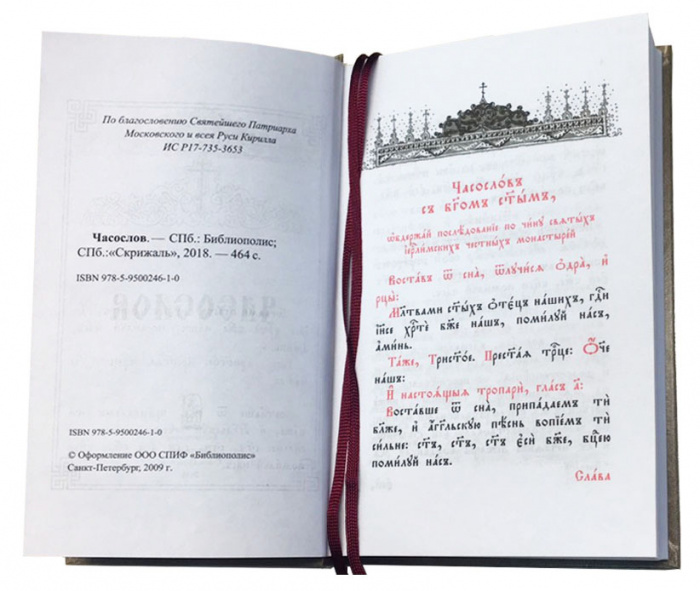 По благословению Святейшего Патриарха
Московского и всея Руси Кирилла
ИС Р17-735-3653
Часослов. — СПб.: Библиополис;
СПб.:«Скрижаль», 2018. — 464 с.
ISBN 978-5-9500246-1-0
ISBN 978-5-9500246-1-0
© Оформление ООО СПИФ «Библиополис»
Санкт-Петербург, 2009 г.
Часосло́въ
съ бг҃омъ ст҃ы́мъ,
ѡ҆держа́й послѣ́дованїе по чи́ну свѧты́хъ
і҆ерⷭ҇ли́мскихъ честны́хъ монастыре́й
Воста́въ ѿ сна̀, ѿлꙋчи́сѧ ѻ҆дра̀, и҆
рцы̀:
Мл҃твами ст҃ы́хъ ѻ҆те́цъ на́шихъ, гдⷭ҇и
і҆и҃се хрⷭ҇тѐ бж҃е на́шъ, поми́лꙋй на́съ,
а҆ми́нь.
Та́же, Трист҃о́е. Прест҃а́ѧ трⷪ҇це: Ѻ҆́ч҃е
на́шъ:
И҆ настоѧ́щыѧ тропари̑, гла́съ а҃:
Воста́вше ѿ сна̀, припа́даемъ тѝ
бл҃же, и҆ а҆́гг҃льскꙋю пѣ́снь вопїе́мъ тѝ
си́льне: ст҃ъ, ст҃ъ, ст҃ъ є҆сѝ бж҃е, бцⷣею
поми́лꙋй на́съ.
Сла́ва